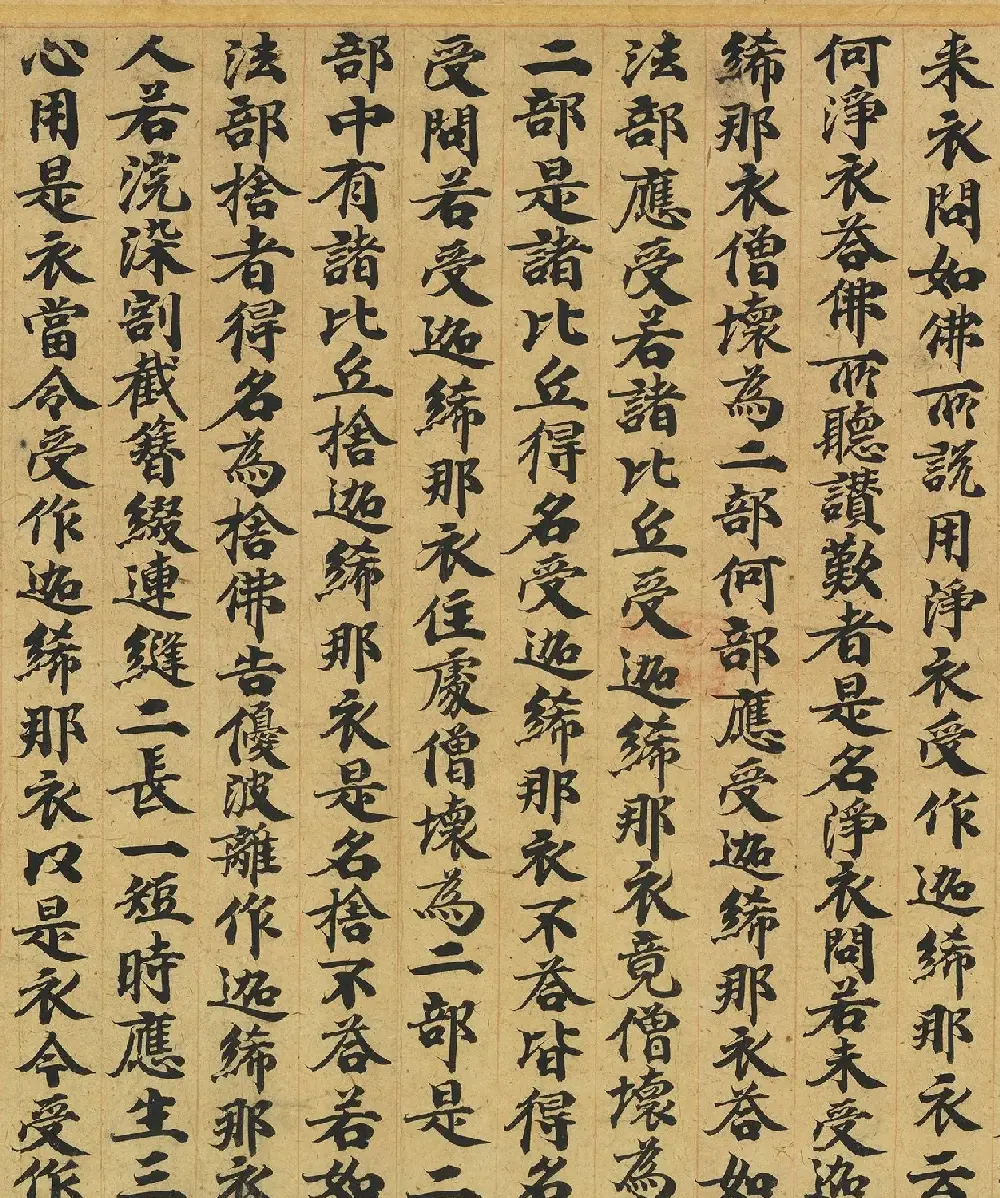 来衣問如佛所說用淨衣受作迦絺那衣云
何淨衣荅佛所聽讃歎者是名淨衣問若未受迦
絺那衣僧壞為二部何部應受迦絺那衣荅如
法部應受若諸比丘受迦絺那衣竟僧壞為
二部是諸比丘得名受迦絺那衣不荅皆得名
受問若受迦絺那衣住處僧壞為二部是二
部中有諸比丘捨迦絺那衣是名捨不荅若如
法部捨者得名為捨佛告優波離作迦絺那衣
人若浣染割截簪綴連縫二長一短時應生三
心用是衣當令受作迦絺那衣以是衣今受作